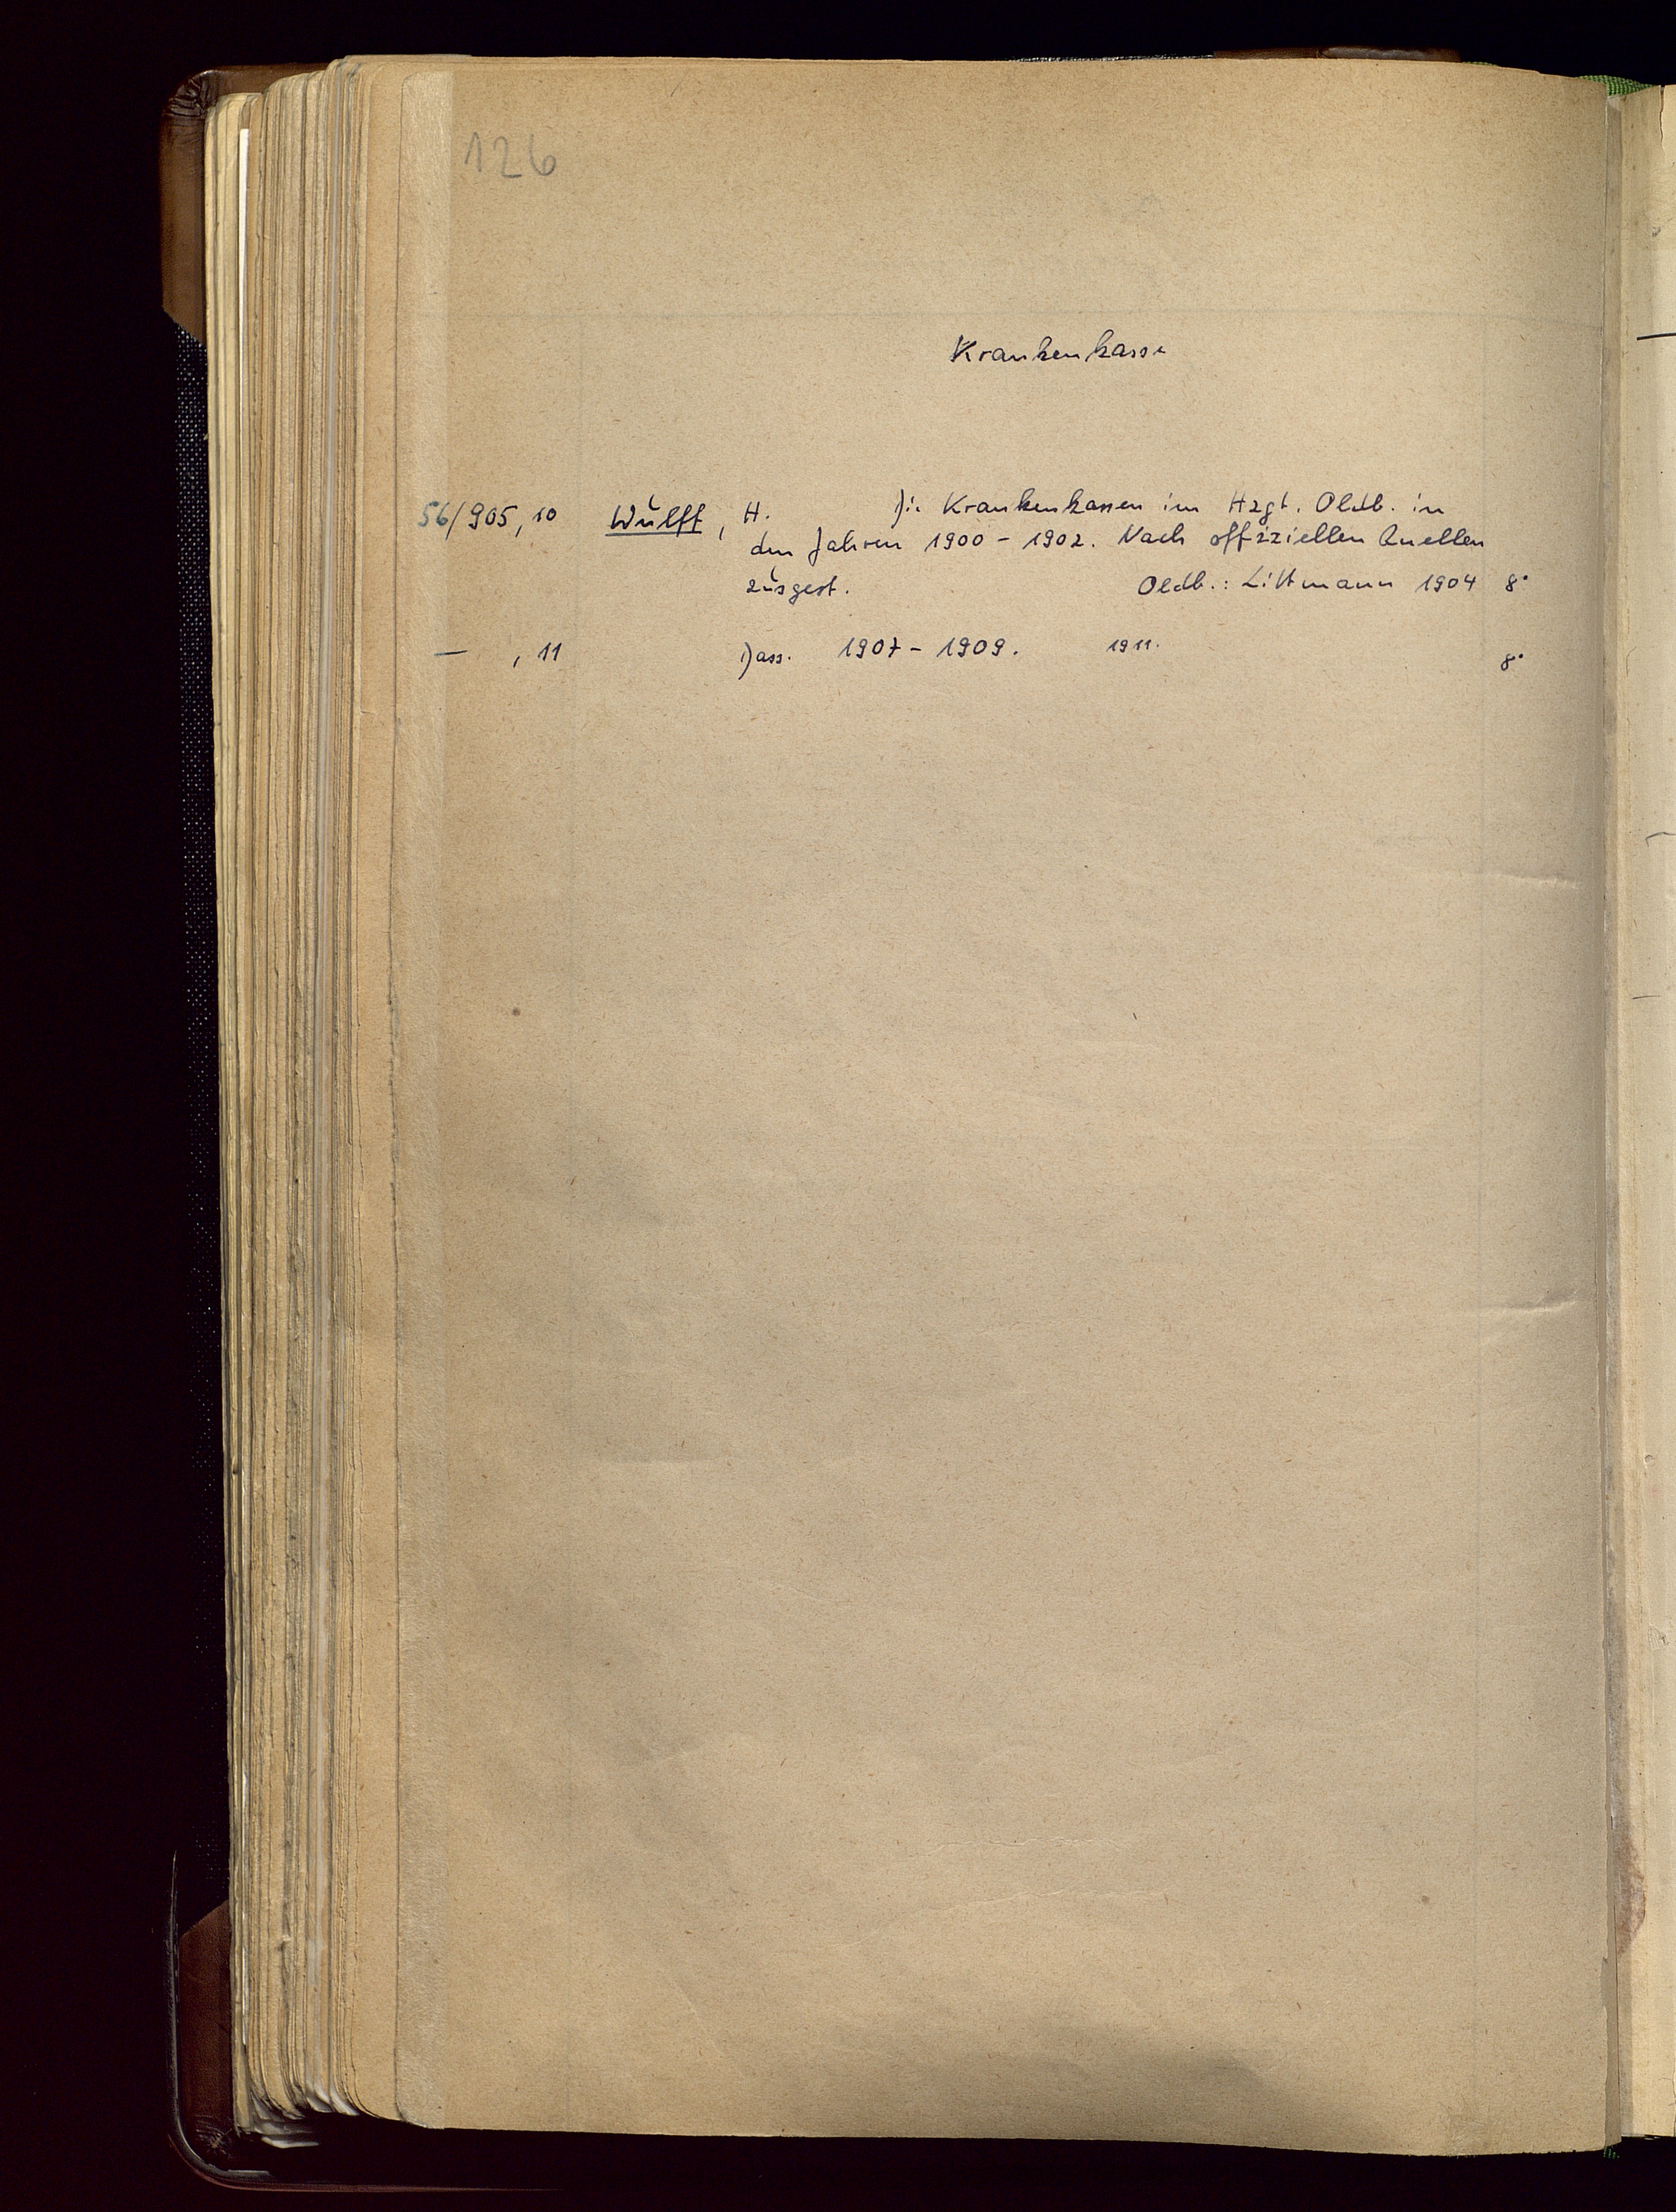 126
Krankenkasse
56/905,10 Wulff, H. Die Krankenkassen im Hzgt. Oldb. in
den Jahren 1900 - 1902. Nach offiziellen Quellen
zusgest. Oldb.: Littmann 1904 8°
— , 11 Dass. 1907 - 1909. 1911. 8°